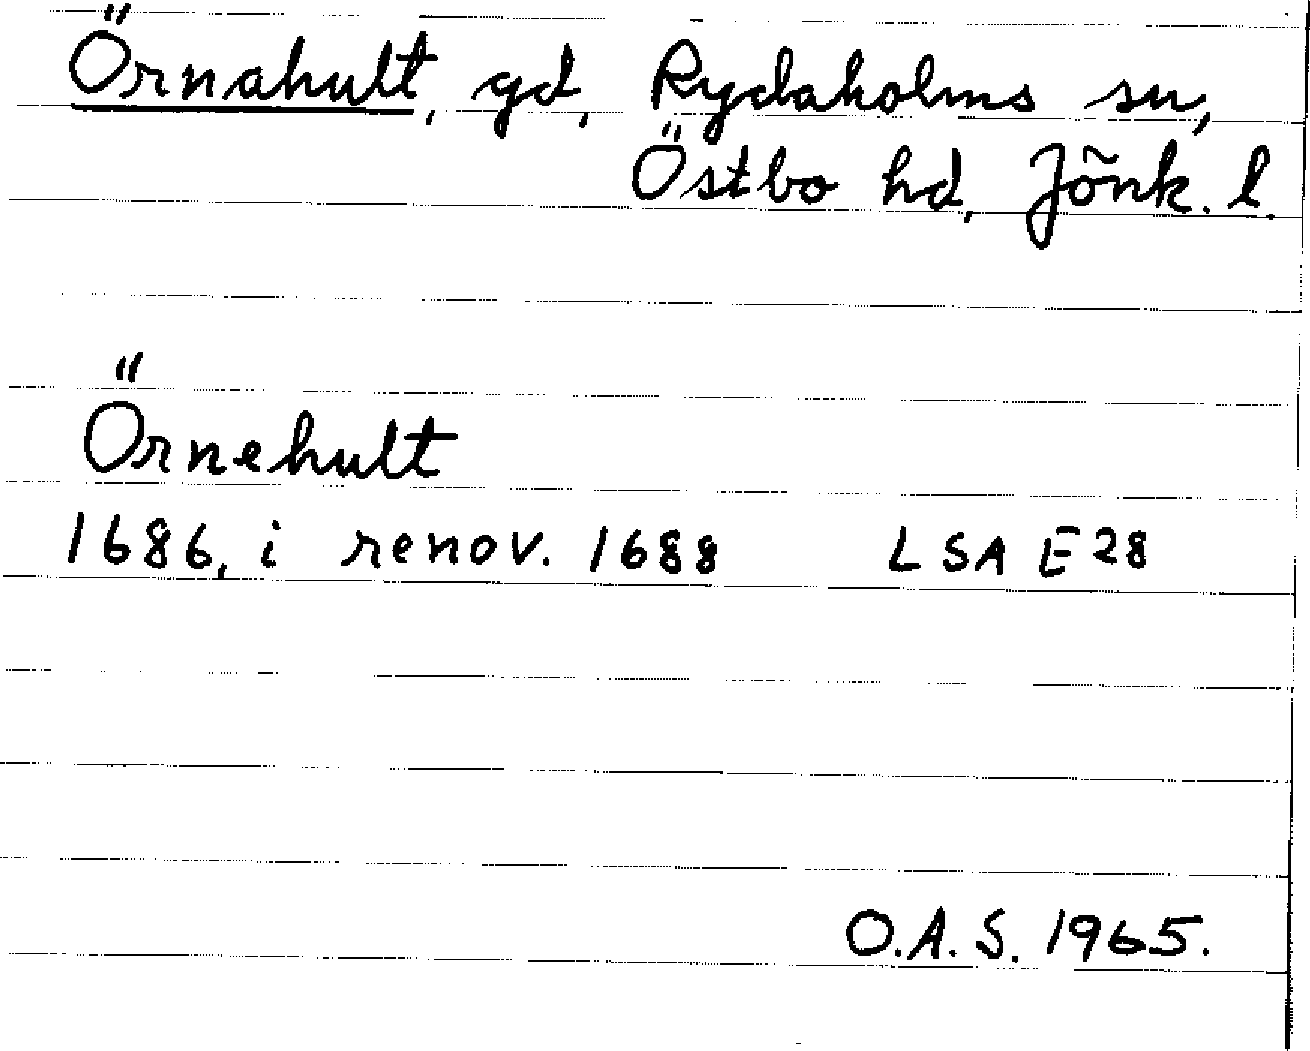 Örnahult, gd, Rydaholms sn,
Östbo hd, Jönk. l.
Örnehult
1686, i renov. 1688 LSA E28
O.A.S. 1965.